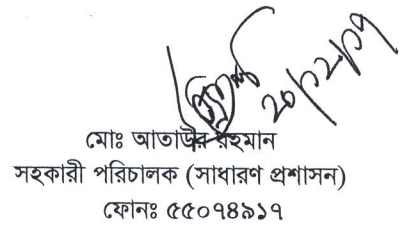 ২০/১২/১৭
মোঃ আতাউর রহমান
সহকারী পরিচালক (সাধারণ প্রশাসন)
ফোনঃ ৫৫০৭৪৯১৭